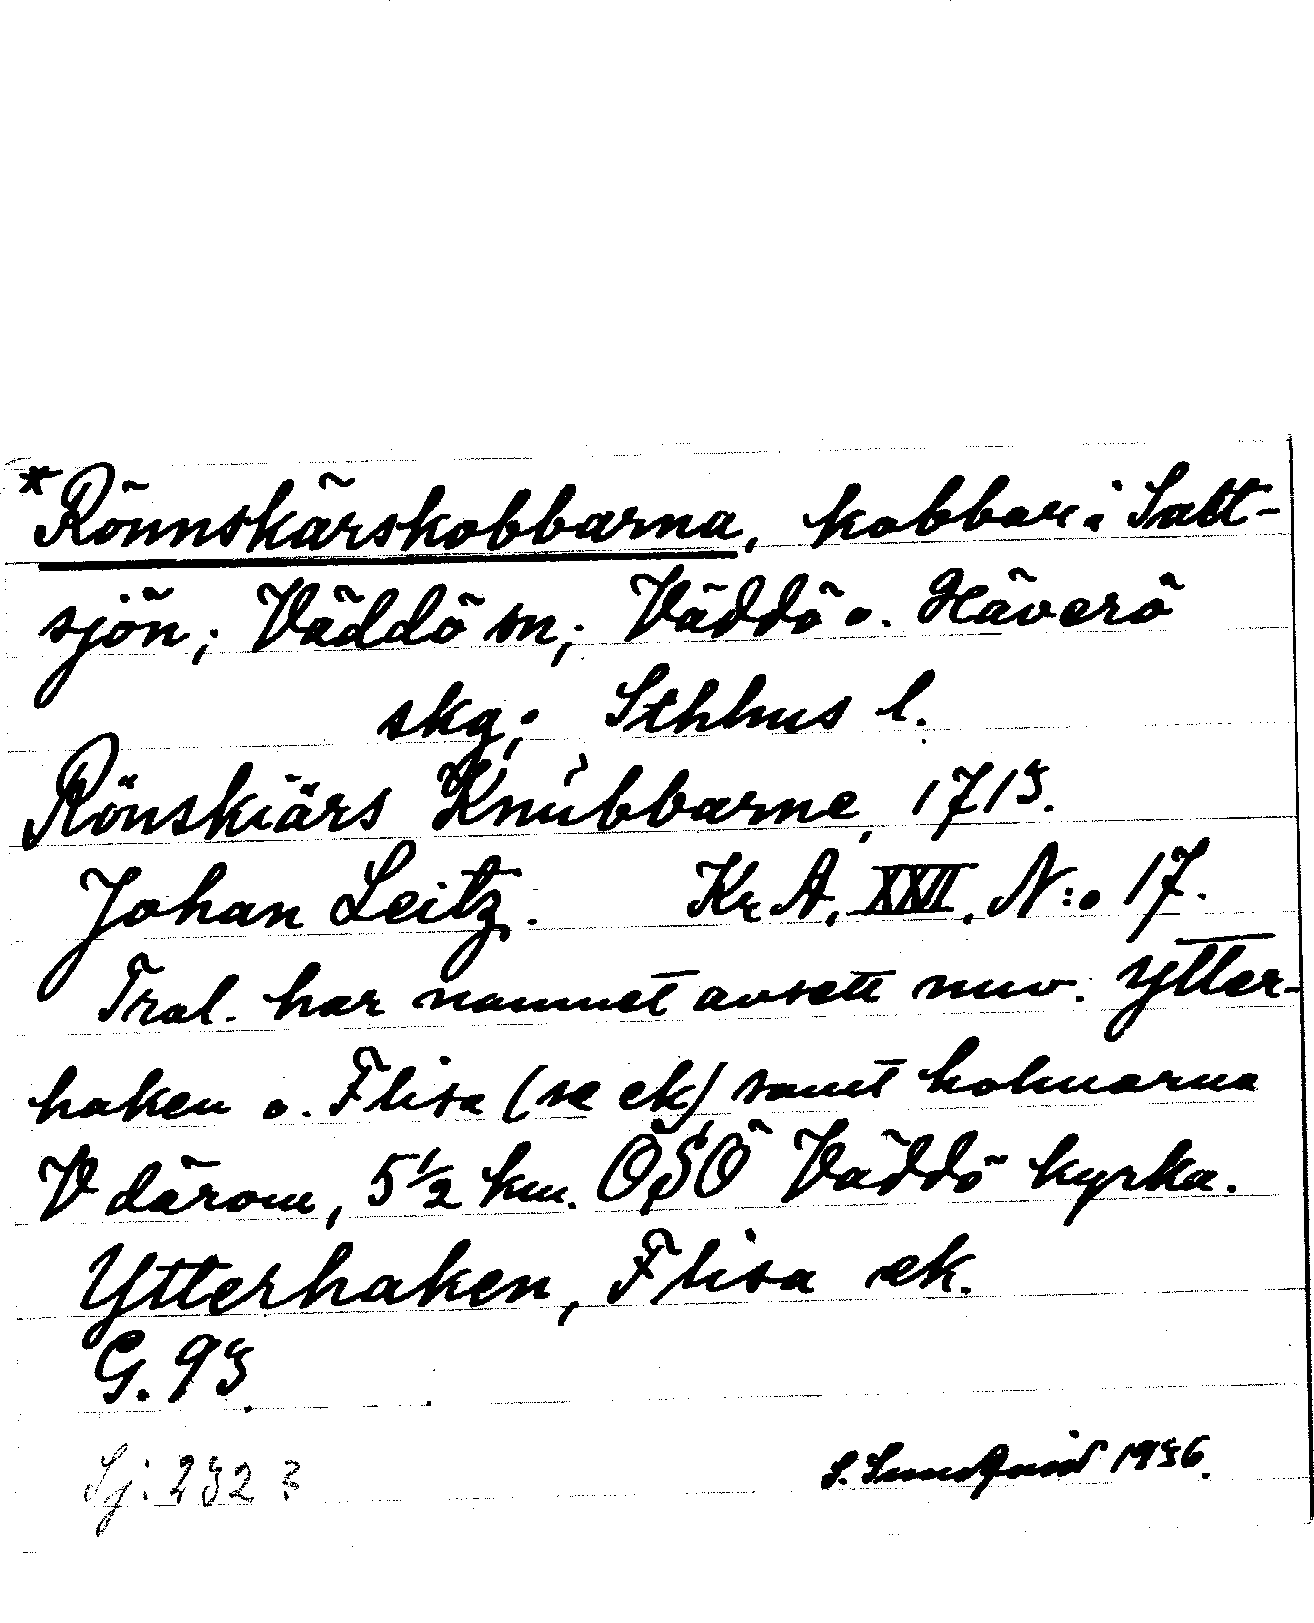 *Rönnskärskobbarna, kobbar i Salt-
sjön; Väddö sn; Väddö o. Häverö
skg; Sthlms l.
Rönskiärs Knubbarne, 1715.
Johan Leitz. Kr A. XXVI. N:o 17.
Trol. har namnet avsett nuv. Ytter-
haken o. Flisa (se ek) samt holmarna
V därom, 5 1/2 km. ÖSÖ Väddö kyrka.
Ytterhaken, Flisa ek.
G. 95
Sj: 252 3
S. Sundquist 1936.